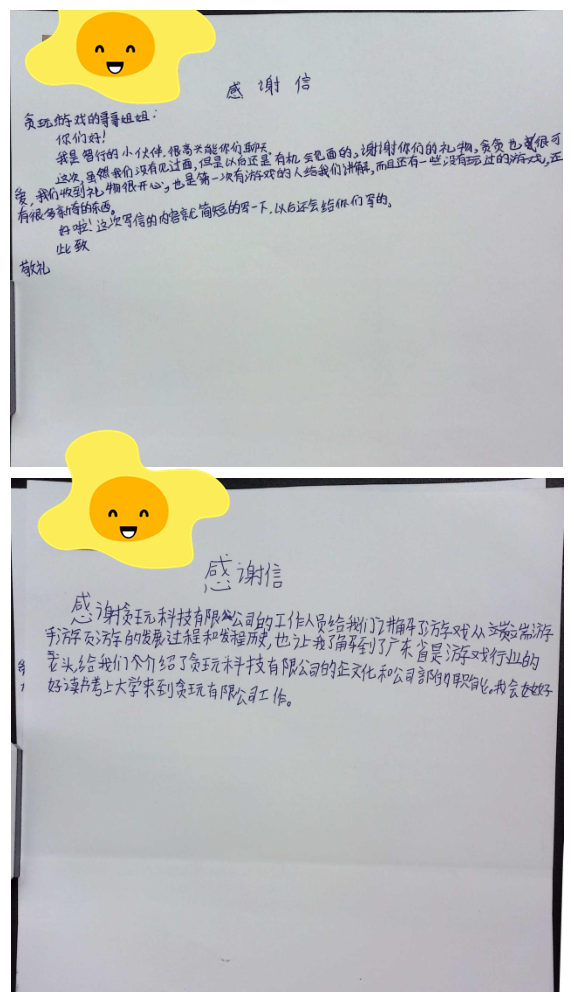 感谢信
贪玩游戏的哥哥姐姐：
你们好！
我是智行的小伙伴，很高兴能你们聊天。
这次，虽然我们没有见过面，但是以后还是有机会见面的，谢谢你们的礼物，贪贪也很可
爱，我们收到礼物很开心，也是第一次有游戏的人给我们讲解，而且还有一些没有玩过的游戏，还
有很多新奇的东西。
好啦！这次写信的内容就简短的写一下，以后还会给你们写的。
此致
敬礼
感谢信
感谢贪玩科技有限公司的工作人员给我们讲解了游戏从端游
手游页游的发展过程和发程历史，也让我了解到了广东省是游戏行业的
龙头，给我们介绍了贪玩科技有限公司的企文化和公司部的职能。我会好好
好读书考上大学来到贪玩有限公司工作。